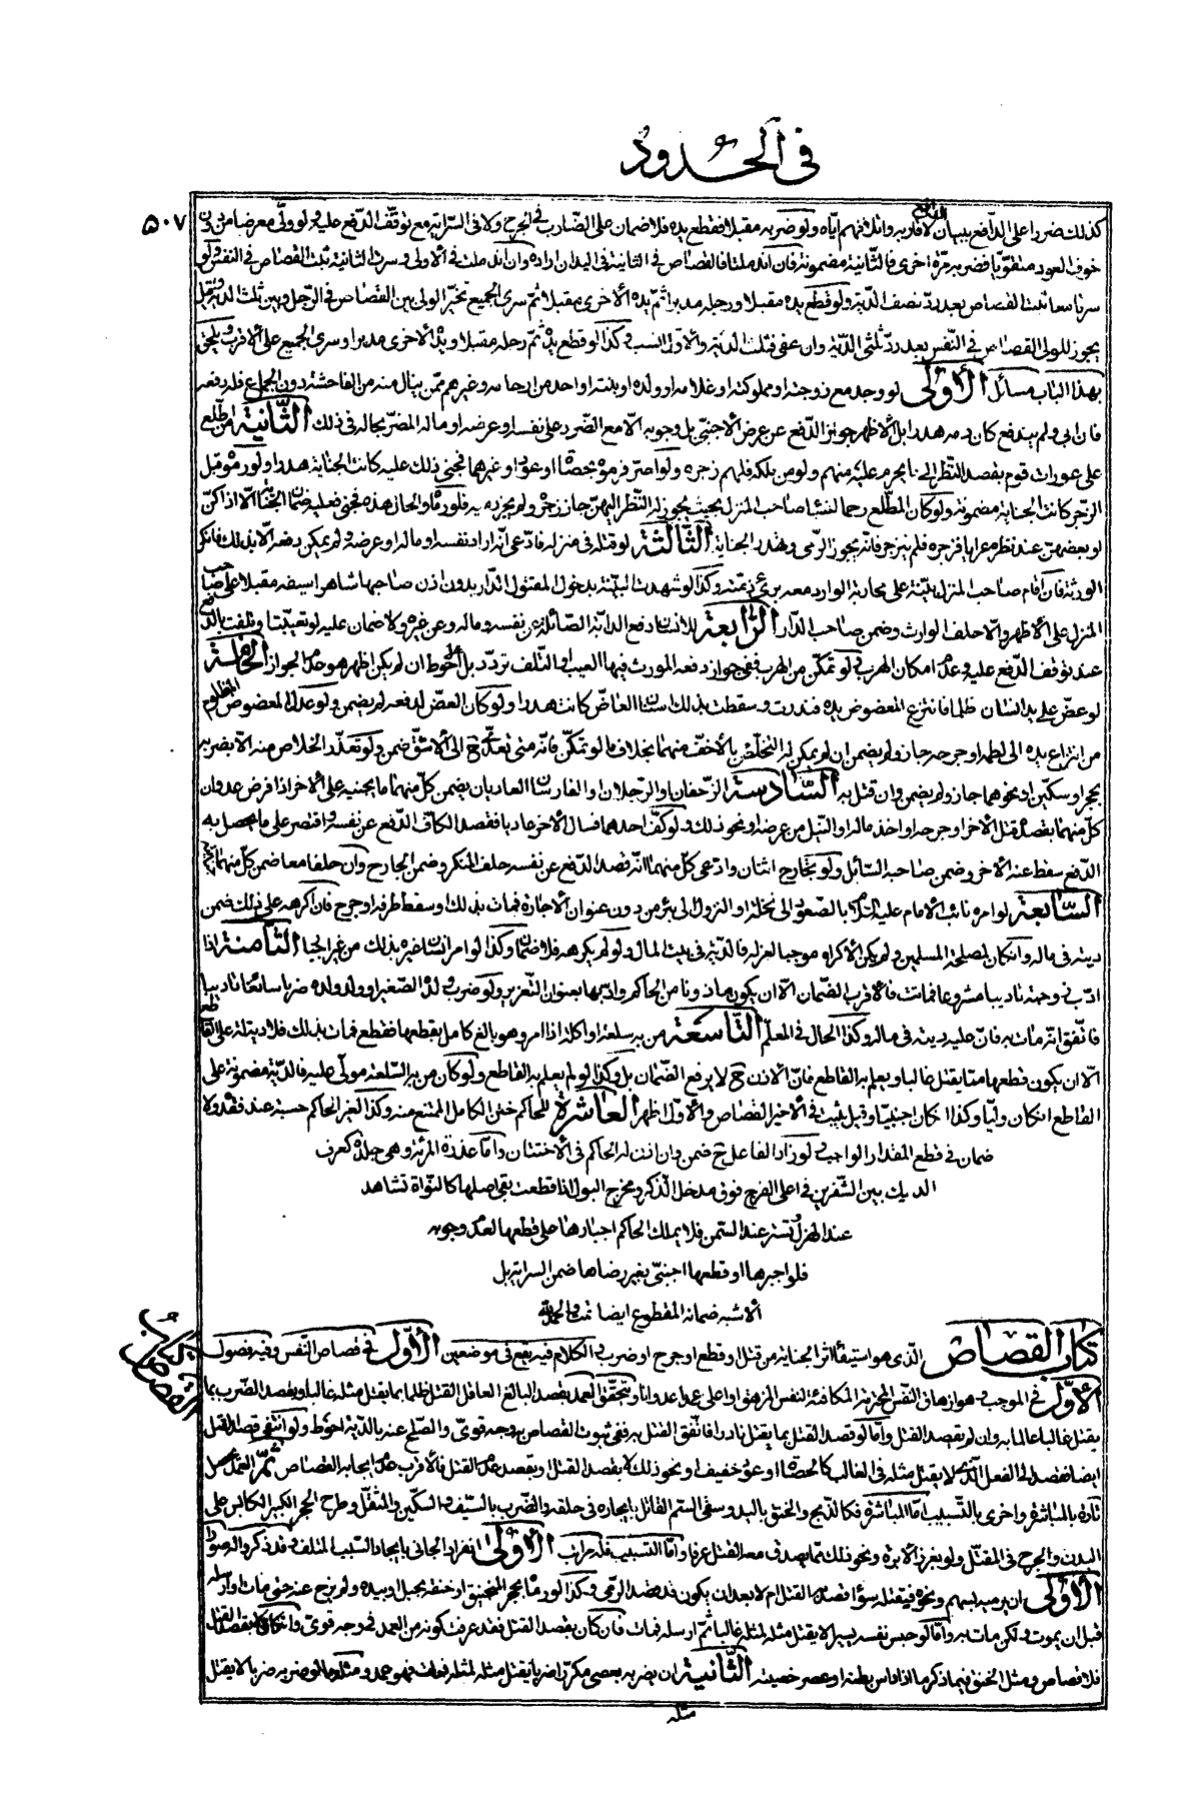 في الحدود
٥٠٧
كذلك ضررا على الدافع ببيان لاقاربه واتلافهم اياه ولو ضربه مقبلا فقطع يده فلا ضمان على الضارب في الجرح ولا في السراية مع توقف الدفع عليه ولو ولى معرضا من دون
خوف العود منتقو يا فضربه مرة اخرى فالثانية مضمونة فان اندملتا فالقصاص في الثانية في اليد ان اراده وان اندملت في الاولى وسرت الثانية ثبت القصاص في النفس ولو
سرتا معا ثبت القصاص بعد رد نصف الدية ولو قطع يده مقبلا ورجله مدبرا ثم يده الاخرى مقبلا ثم سرى الجميع تخير الولى بين القصاص في الرجل وبين ثلث الدية وقيل
يجوز للولى القصاص في النفس بعد رد ثلثى الدية وان عفى فثلث الدية والاول انسب وكذا لو قطع يده ثم رجله مقبلا ويده الاخرى مدبرا وسرى الجميع على الاقرب ويلحق
بهذا الباب مسائل الاولى لو وجد مع زوجته او مملوكته او غلامه او ولده او بنته او احد من ارحامه وغيرهم من ينال منه من الفاحشة دون الجماع فله دفعه
فان ابى ولم يندفع كان دمه هدرا بل الاظهر جواز الدفع عن عرض الاجنبى بل وجوبه الا مع الضرر على نفسه او عرضه او ماله المضر بحاله في ذلك الثانية من اطلع
على عورات قوم بقصد النظر الى ما يحرم عليه منهم ولو من ملكه فلهم زجره ولو اصر فرموه بحصاة او عود او غيرهما فجنى ذلك عليه كانت الجناية هدرا ولو رموه قبل
الزجر كانت الجناية مضمونة ولو كان المطلع رحما لنساء صاحب المنزل بحيث يجوز له النظر اليهن جاز زجره ولم يجز رميه فلو رماه والحال هذه فجنى فعليه ضمان الجناية الا اذا كن
او بعضهن عند نظره عراة فزجره فلم ينزجر فانه يجوز الرمى وهدر الجناية الثالثة لو قتله في منزله فادعى انه اراد نفسه او ماله او عرضه ولم يمكن دفعه الا بذلك فانكر
الورثة فان اقام صاحب المنزل بينة على محاربة الوارد معه برئ ذمته وكذا لو شهدت البينة بدخول المقتول الدار بدون اذن صاحبها شاهرا سيفه مقبلا على صاحب
المنزل على الاظهر والا حلف الوارث وضمن صاحب الدار الرابعة للانسان دفع الدابة الصائلة عن نفسه وماله وعن غيره ولا ضمان عليه لو تعيبت او تلفت بالدفع
عند توقف الدفع عليه وعدم امكان الهرب ولو تمكن من الهرب ففي جواز دفعه المورث فيها العيب او التلف تردد بل الاحوط ان لم يكن اظهر هو عدم الجواز الخامسة
لو عض على يد انسان ظلما فانتزع المعضوض يده فندرت وسقطت بذلك اسنان العاض كانت هدرا ولو كان العض لدفعه لم يضمن ولو عدل المعضوض المظلوم
من انتزاع يده الى لطمه او جرحه جاز ولم يضمن ان لم يمكن له التخلص بالاخف منهما بخلاف ما لو تمكن فانه متى تعدى ح الى الاشق ضمن ولو تعذر الخلاص منه الا بضربه
بحجر او سكين او نحوهما جاز ولم يضمن وان قتل به السادسة الزحفان والرجلان او الفارسان العاديان يضمن كل منهما ما يجنيه على الاخر اذا فرض عدوان
كل منهما بقصد قتل الاخر او جرحه او اخذ ماله او النيل من عرضه او نحو ذلك ولو كف احدهما فسال الاخر عاديا فقصد الكاف الدفع عن نفسه واقتصر على ما يحصل به
الدفع سقط عنه الاخر وضمن صاحبه السائل ولو تجارح اثنان وادعى كل منهما انه قصد الدفع عن نفسه حلف المنكر وضمن الجارح وان حلفا معا ضمن كل منهما
السابعة لو امره نائب الامام عليه السلام بالصعود الى نخلة او النزول الى بئر من دون عنوان الاجارة فمات بذلك او سقط طرفه او جرح فان اكرهه على ذلك ضمن
ديته في ماله وان كان لمصلحة المسلمين ولم يكن الاكراه موجبا لعزله فالدية في بيت المال ولو لم يكرهه فلا ضمان وكذا لو امر انسان غيره بذلك من غير اجبار الثامنة اذا
ادب زوجته تاديبا مشروعا فماتت فالاقرب الضمان الا ان يكون ماذونا من الحاكم وادبها بعنوان التعزير ولو ضرب ولده الصغير او ولد ولده ضربا سائغا تاديبا
فاتفق انه مات به فان عليه ديته في ماله وكذا الحال في المعلم التاسعة من به سلعة او اكلة اذا امر وهو بالغ كامل بقطعها فقطع فمات بذلك فلا دية له على القاطع
الا ان يكون قطعها مما يقتل غالبا ويعلم به القاطع فان الاذن ح لا يرفع الضمان بل وكذا لو لم يعلم به القاطع ولو كان من به السلعة مولى عليه فالدية مضمونة على
القاطع ان كان وليا وكذا ان كان اجنبيا وقيل يثبت في الاخير القصاص والاول اظهر العاشرة للحاكم ختن الكامل الممتنع منه وكذا لغير الحاكم حسبة عند فقده ولا
ضمان في قطع المقدار الواجب ولو زاد الفاعل ح ضمن وان اذن له الحاكم في الاختتان واما عذرة المرئة وهى جلدة كعرف
الديك بين الشفرين في اعلى الفرج فوق مدخل الذكر ومخرج البول اذا قطعت بقى اصلها كالنواة تشاهد
عند الهزل وتستر عند السمن فلا يملك الحاكم اجبارها على قطعها لعدم وجوبه
فلو اجبرها او قطعها اجنبى بغير رضاها ضمن السراية بل
الاشبه ضمانه المقطوع ايضا تمت والحمد لله
كتاب القصاص الذى هو استيفاء اثر الجناية من قتل او قطع او جرح او ضرب والكلام فيه يقع في موضعين الاول في قصاص النفس وفيه فصول
كتاب القصاص
الاول في الموجب وهو ازهاق النفس المحترمة المكافئة لنفس المزهق او اعلى عمدا عدوانا ويتحقق العمد بقصد البالغ العاقل القتل ظلما بما يقتل مثله غالبا وبقصد الضرب بما
يقتل غالبا عالما به وان لم يقصد القتل واما لو قصد القتل بما يقتل نادرا فاتفق القتل به ففي ثبوت القصاص به وجه قوى والصلح عنه بالدية احوط ولو انتفى قصد القتل
ايضا فقصد الى الفعل الذى لا يقتل مثله في الغالب كالحصاة او عود خفيف او نحو ذلك لا بقصد القتل وبقصد عدم القتل فالاقرب عدم ايجابه القصاص ثم العمد يحصل
تارة بالمباشرة واخرى بالتسبيب اما المباشرة فكالذبح والخنق باليد وسقى السم القاتل بايجاره في حلقه والضرب بالسيف والسكين والمثقل وطرح الحجر الكبير الكابس على
البدن والجرح في المقتل ولو بغرز الابرة ونحو ذلك مما يصدق معه القتل عرفا واما التسبيب فله مراتب الاولى انفراد الجانى بايجاد السبب المتلف وقد ذكر واله صورا
الاولى ان يرميه بسهم ونحوه فيقتله سواء قصد القتل ام لا بعد ان يكون قد قصد الرمى وكذا لو رماه بحجر المنجنيق او خنقه بحبل او بيده ولم يزح عنه حتى مات او ارسله
قبل ان يموت ولكن مات به واما لو حبس نفسه يسيرا لا يقتل مثله لمثله غالبا ثم ارسله فمات فان كان بقصد القتل فقد عرفت كونه من العمد في وجه قوى وان كان لا بقصد القتل
فلا قصاص ومثل الخنق فيما ذكر ما اذا داس بطنه او عصر خصيته الثانية ان يضربه بعصى مكررا ضربا يقتل مثله لمثله فمات فهو عمد ومثله ما لو ضربه ضربا لا يقتل
مثله